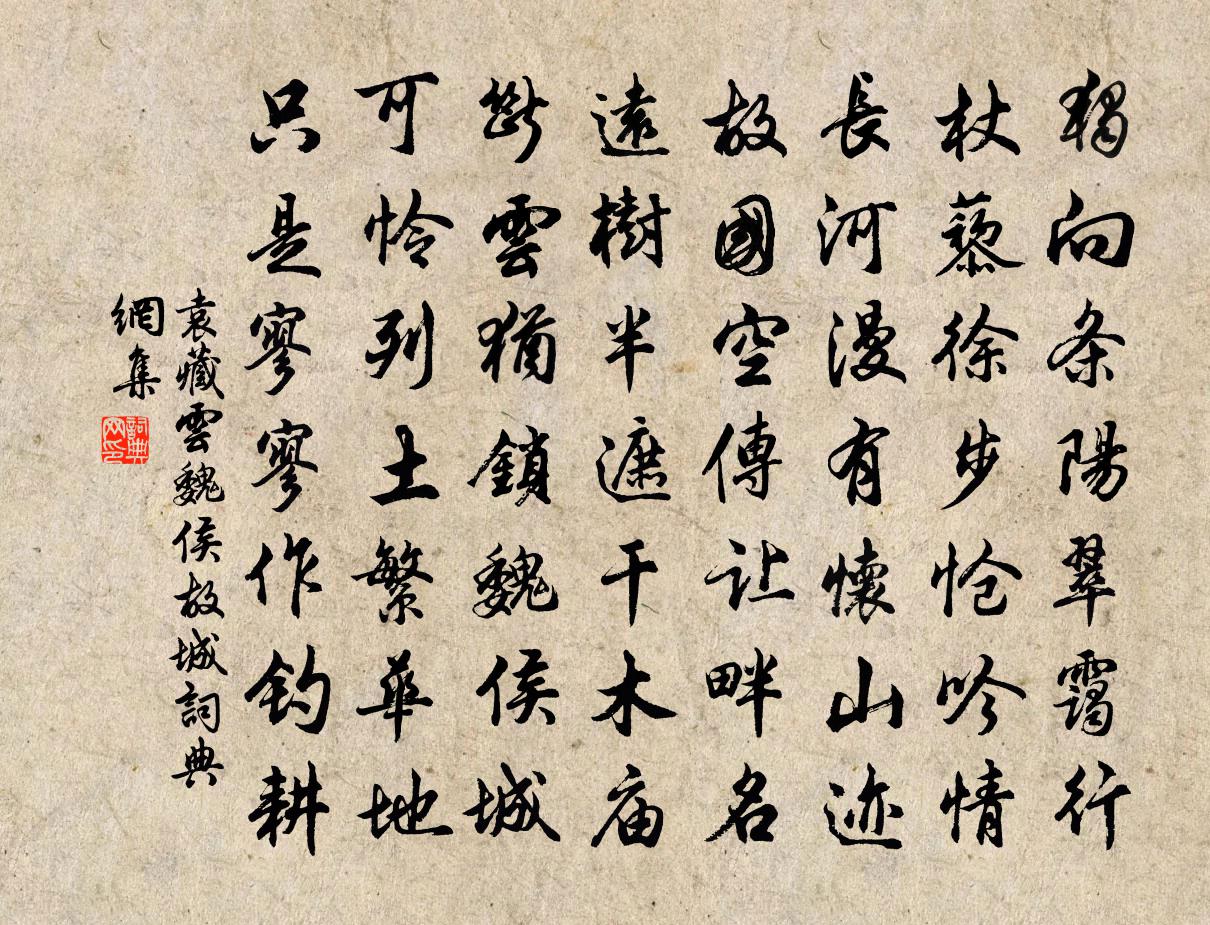 獨向条陽翠靄行
杖藜徐步怆吟情
長河漫有懷山迹
故國空傳让畔名
遠樹半遮干木庙
斷雲猶鎖魏侯城
可怜列土繁華地
只是寥寥作钓耕
袁藏雲魏侯故城詞典
網集
詞典
网印